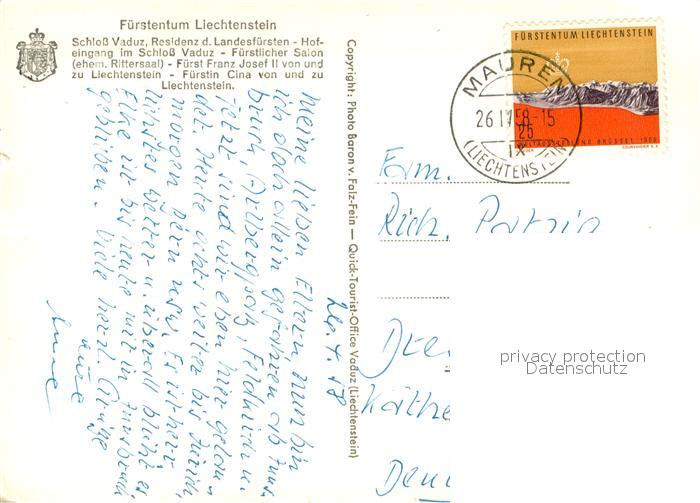 Fürstentum Liechtenstein
Schloß Vaduz, Residenz d. Landesfürsten - Hof-
eingang im Schloß Vaduz - Fürstlicher Salon
(ehem. Rittersaal) - Fürst Franz Josef II von und
zu Liechtenstein - Fürstin Gina von und zu
Liechtenstein.
Copyright: Photo Baron v. Falz-Fein — Quick-Tourist-Office Vaduz (Liechtenstein)
FÜRSTENTUM LIECHTENSTEIN
25
WELTAUSSTELLUNG BRÜSSEL 1958
COURVOISIER S.A.
MAUREN
26.IV.58-15
(LIECHTENSTEIN)
26.4.58
Meine lieben Eltern, nun bin
ich doch allein gefahren ab Inns
bruck, Arlbergpaß, Feldkirch u.
jetzt sind wir eben hier gelan-
det. Heute gehts weiter bis Zürich,
morgen Bern usw. Es ist herr-
lichstes Wetter u. überall blüht es
Elke ist bis heute mit in Innsbruck
geblieben. Viele herzl. Grüße
Eure
Anne
Fam.
Rich.
privacy protection
Datenschutz